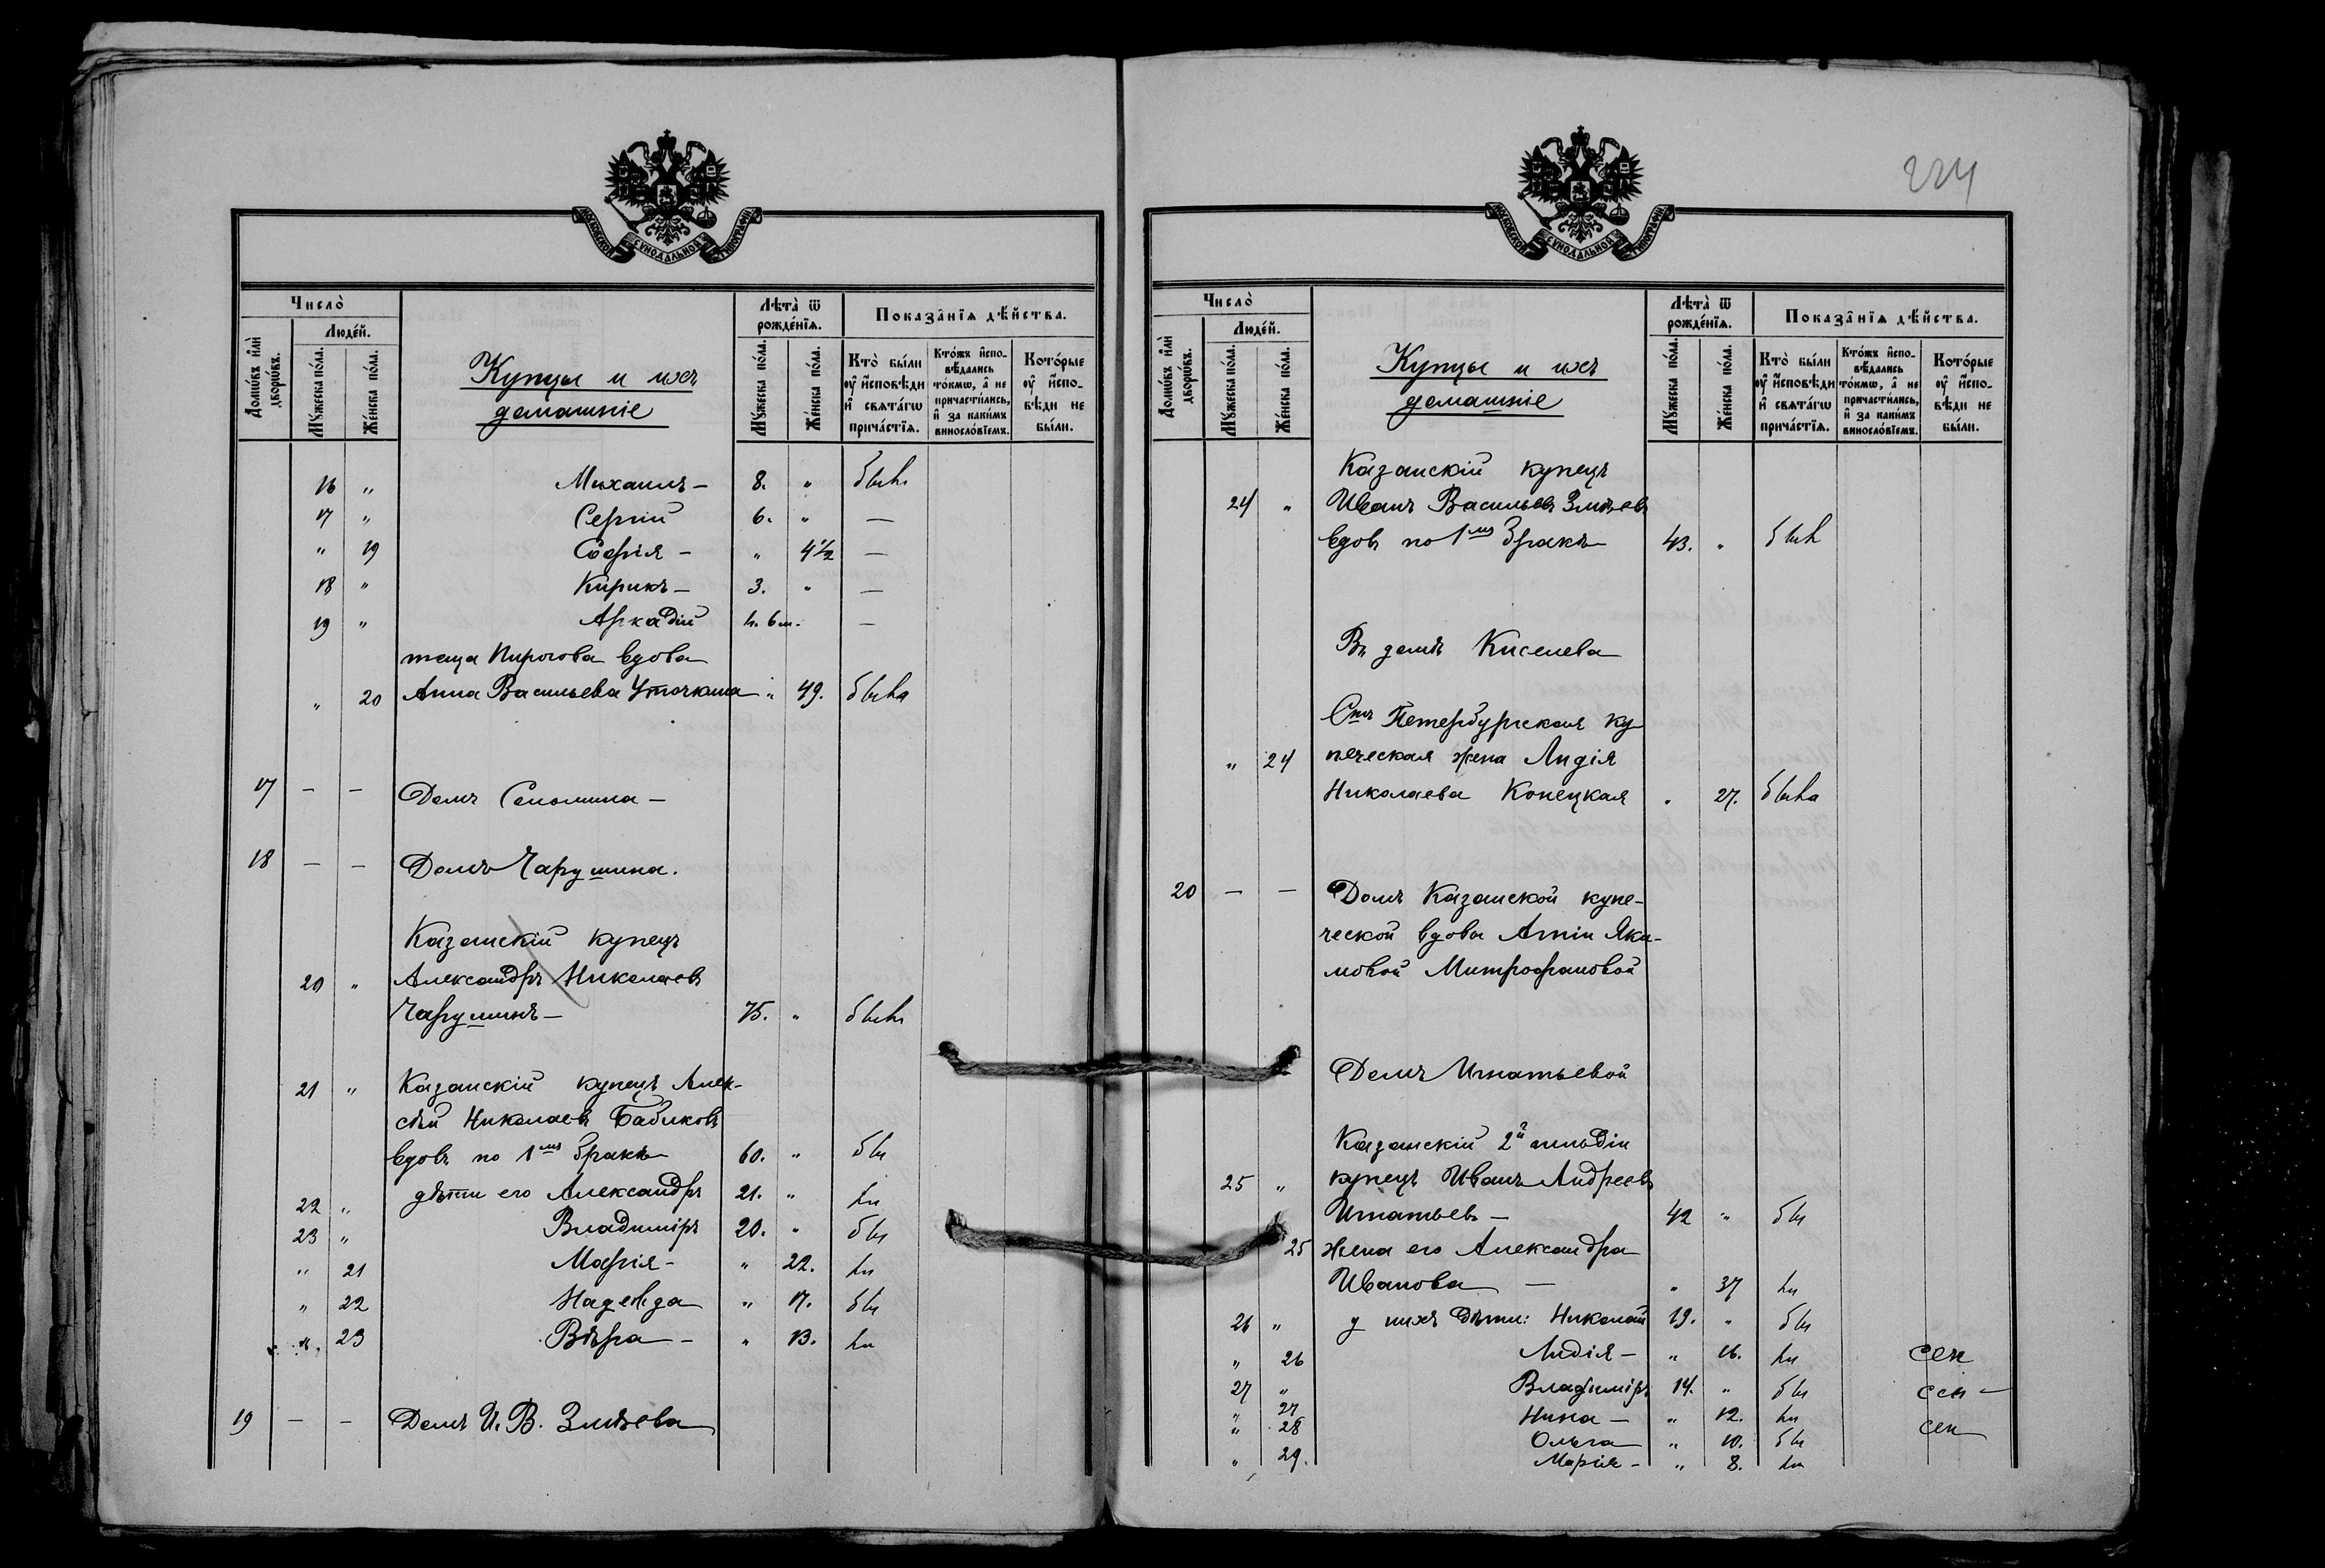 МОСКОВСКОЙ СѴНОДАЛЬНОЙ ТИПОГРАФІИ
Число̀
Домѡ́въ и҆лѝ дворѡ́въ.
Люде́й.
Мꙋ́жеска по́ла.
Же́нска по́ла.
Купцы и ихъ
домашніе
Лѣта̀ ѿ рожде́нїѧ.
Мꙋ́жеска по́ла.
Же́нска по́ла.
Показа̑нїѧ дѣ́йства.
Кто̀ бы́ли ᲂу҆ и҆сповѣ́ди и҆ свѧта́гѡ прича́стїѧ.
Кто́жъ и҆спо-вѣ́дались то́кмѡ, а҆ не причасти́лись, и҆ за каки́мъ винослові́емъ.
Кото́рые ᲂу҆ и҆спо-вѣ́ди не бы́ли.
16 " Михаилъ — 8. " были
17 " Сергій 6. " —
" 19 Софія — " 4½ —
18 " Кирикъ — 3. " —
19 " Аркадій 6 м. —
теща Пирогова вдова
" 20 Анна Васильева Уточкина " 49. была
17 — — Домъ —
18 — — Домъ Чарушина.
Казанскій купецъ
20 " Александръ Николаевъ
Чарушинъ — 75. " были
21 " Казанскій купецъ Алек-
сѣй Николаевъ Бабиковъ
вдовъ по 1мъ бракѣ 60. " бы
22 " дѣти его Александръ 21. " ли
23 " Владиміръ 20. " бы
" 21 Марія — " 22. ли
" 22 Надежда " 17. бы
" 23 Вѣра — " 13. ли
19 — — Домъ И. В. Змѣева
224
МОСКОВСКОЙ СѴНОДАЛЬНОЙ ТИПОГРАФІИ
Число̀
Домѡ́въ и҆лѝ дворѡ́въ.
Люде́й.
Мꙋ́жеска по́ла.
Же́нска по́ла.
Купцы и ихъ
домашніе
Лѣта̀ ѿ рожде́нїѧ.
Мꙋ́жеска по́ла.
Же́нска по́ла.
Показа̑нїѧ дѣ́йства.
Кто̀ бы́ли ᲂу҆ и҆сповѣ́ди и҆ свѧта́гѡ прича́стїѧ.
Кто́жъ и҆спо-вѣ́дались то́кмѡ, а҆ не причасти́лись, и҆ за каки́мъ винослові́емъ.
Кото́рые ᲂу҆ и҆спо-вѣ́ди не бы́ли.
Казанскій купецъ
24 " Иванъ Васильевъ Змѣевъ
вдовъ по 1мъ бракѣ 43. " былъ
Въ домѣ Киселева
Сктъ Петербургская ку
" 24 печеская жена Лидія
Николаева Конецкая " 27. была
20 — — Домъ Казанской купе-
ческой вдовы Анніи Яки-
мовой Митрофановой
Домъ Игнатьевой
Казанскій 2й гильдіи
25 " купецъ Иванъ Андреевъ
Игнатьевъ — 42 " бы
25 жена его Александра
Иванова — " 37 ли
26 " у нихъ дѣти: Николай 19. " бы
" 26 Лидія — " 16. ли
27 " Владиміръ 14. " бы
" 27 Нина — " 12. ли
" 28 Ольга " 10. бы
" 29. Марія — " 8. ли